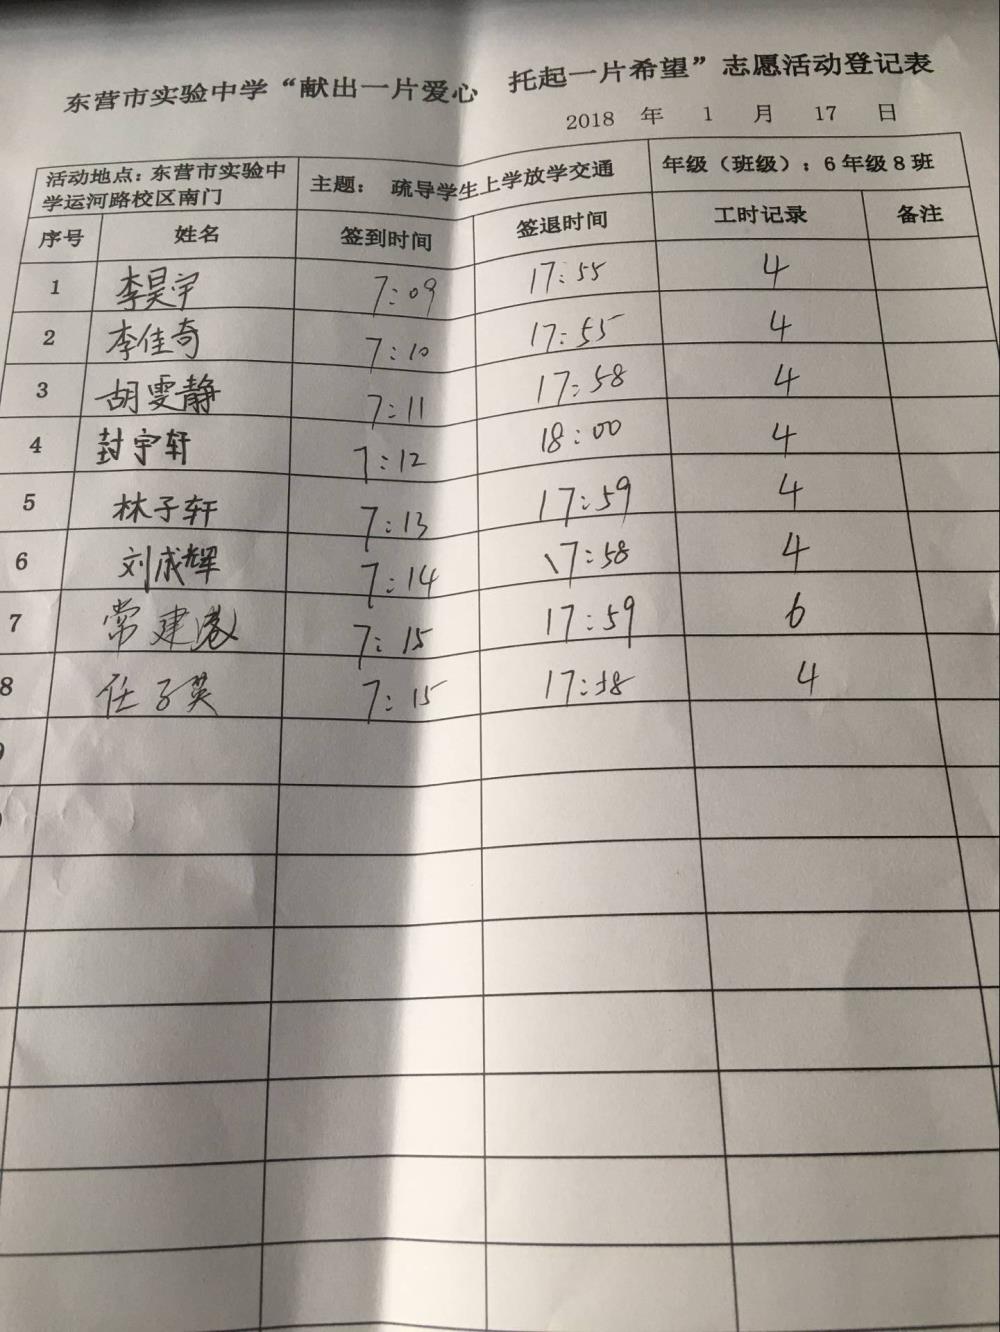 东营市实验中学“献出一片爱心 托起一片希望”志愿活动登记表
2018 年 1 月 17 日
活动地点：东营市实验中学运河路校区南门 主题： 疏导学生上学放学交通 年级（班级）：6年级8班
序号 姓名 签到时间 签退时间 工时记录 备注
1 李昊宇 7:09 17:55 4
2 李佳奇 7:10 17:55 4
3 胡雯静 7:11 17:58 4
4 封宇轩 7:12 18:00 4
5 林子轩 7:13 17:59 4
6 刘成辉 7:14 17:58 4
7 常建 7:15 17:59 6
8 任子英 7:15 17:58 4